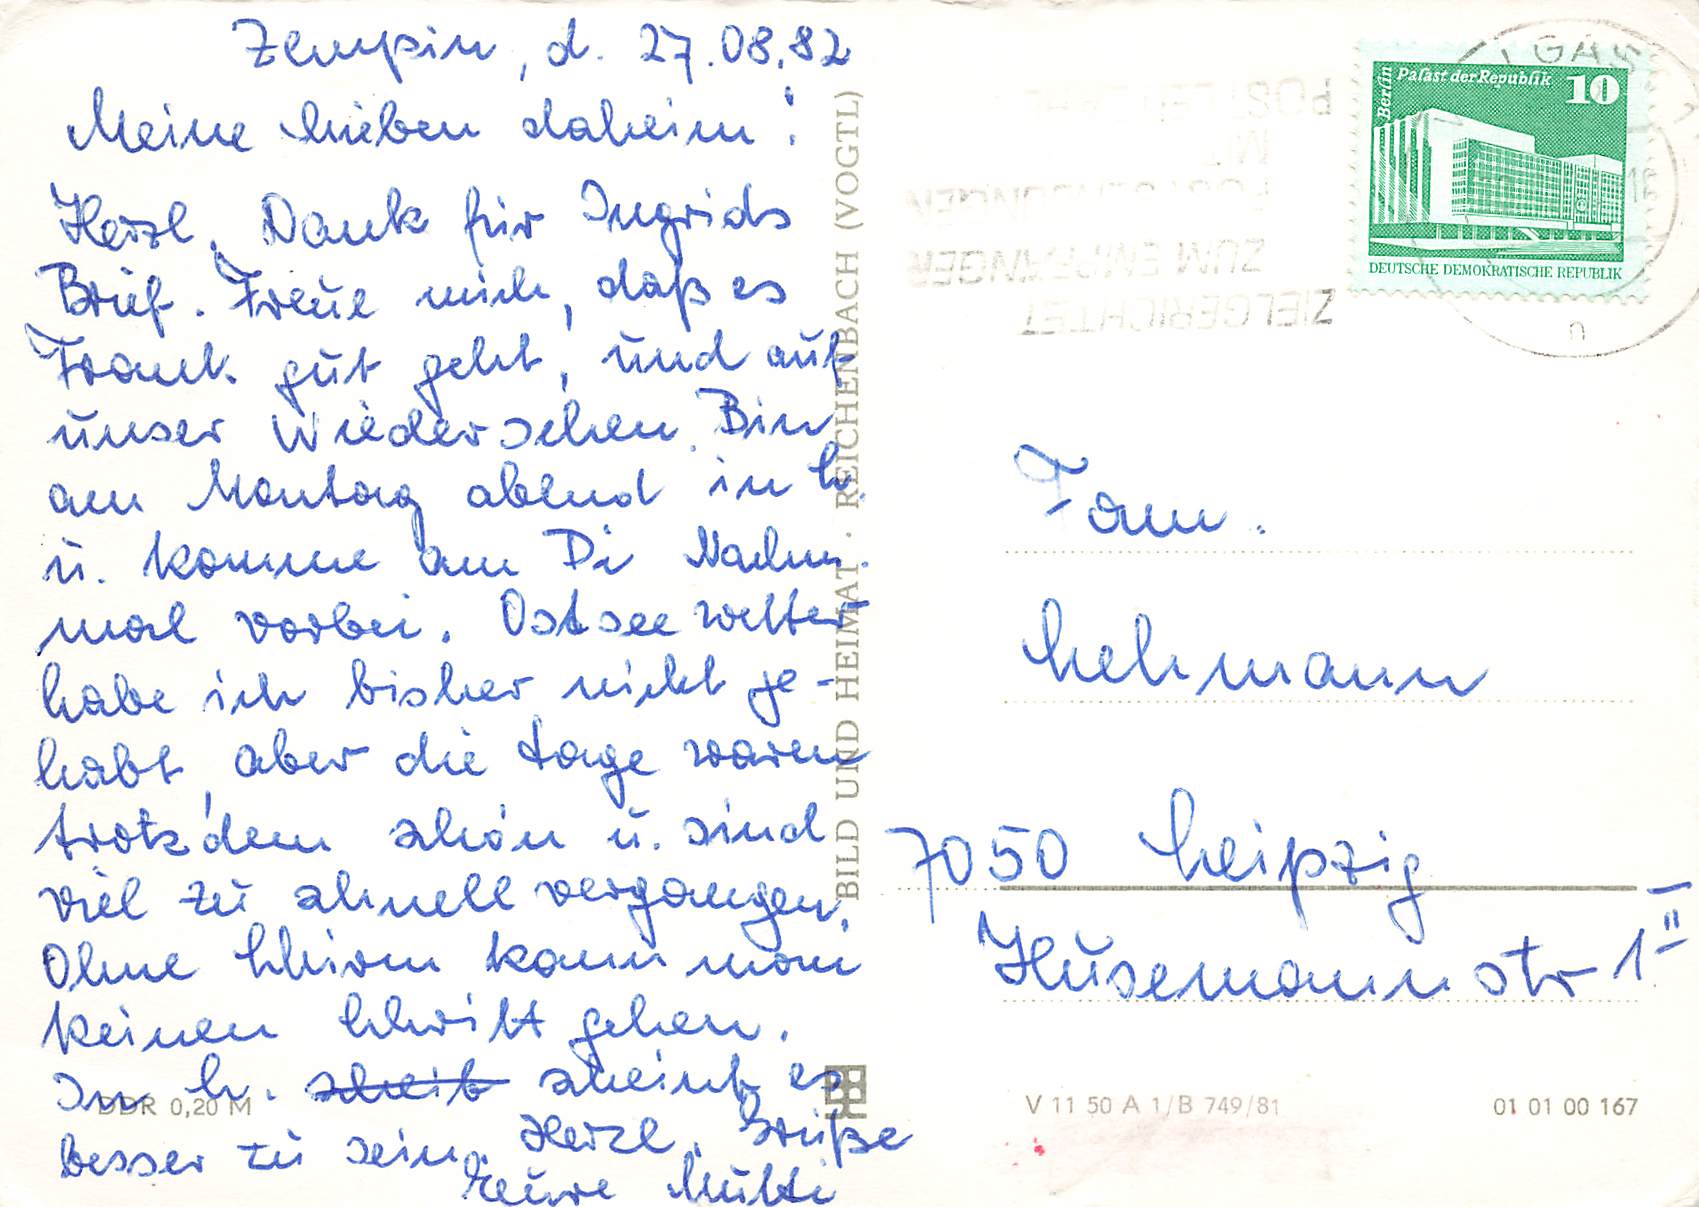 Zempin, d. 27.08.82
Meine Lieben daheim!
Herzl. Dank für Ingrids
Brief. Freue mich, daß es
Frank gut geht, und auf
unser Wiedersehen. Bin
am Montag abend in L.
u. komme am Di Nachm.
mal vorbei. Ostseewetter
habe ich bisher nicht ge-
habt, aber die Tage waren
trotzdem schön u. sind
viel zu schnell vergangen.
Ohne Schirm kann man
keinen Schritt gehen.
In L. scheit scheint es
besser zu sein. Herzl. Grüße
Eure Mutti
BILD UND HEIMAT · REICHENBACH (VOGTL)
DDR 0,20 M
LGAS
Berlin
Palast der Republik
10
DEUTSCHE DEMOKRATISCHE REPUBLIK
n
ZIELGERICHTET
ZUM EMPFÄNGER
POSTSENDUNGEN
MIT
POSTLEITZAHL
Fam.
Lehmann
7050 Leipzig
Husemannstr 1 II
V 11 50 A 1/B 749/81
01 01 00 167